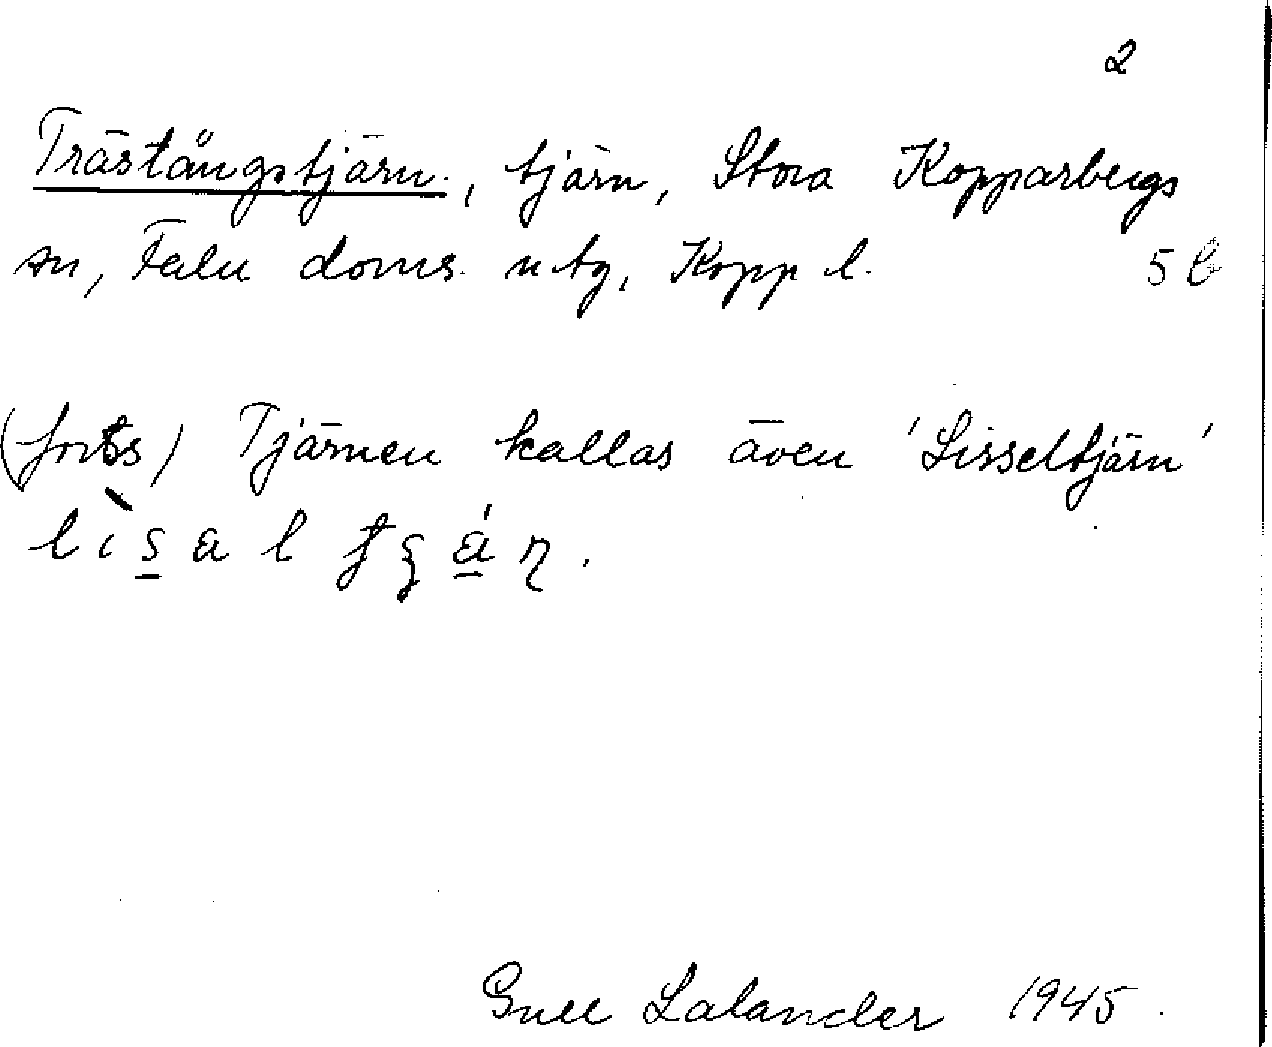 2
Trästängstjärn, tjärn, Stora Kopparbergs
sn, Falu doms. utg, Kopp l. 5b
(forts) Tjärnen kallas även 'Lisseltjärn'
Gull Lalander 1945.